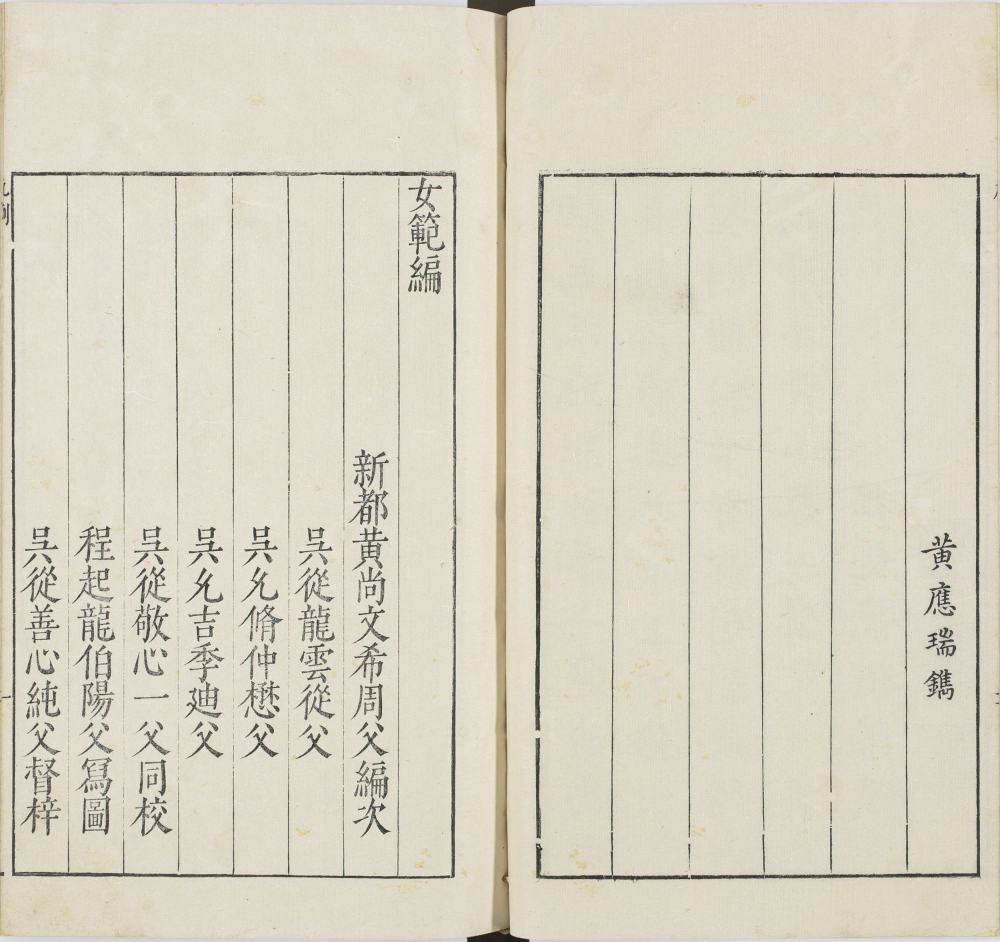 黄應瑞鐫
女範編
新都黄尚文希周父編次
吴從龍雲從父
吴允脩仲懋父
吴允吉季廸父
吴從敬心一父同校
程起龍伯陽父冩圖
吴從善心純父督梓